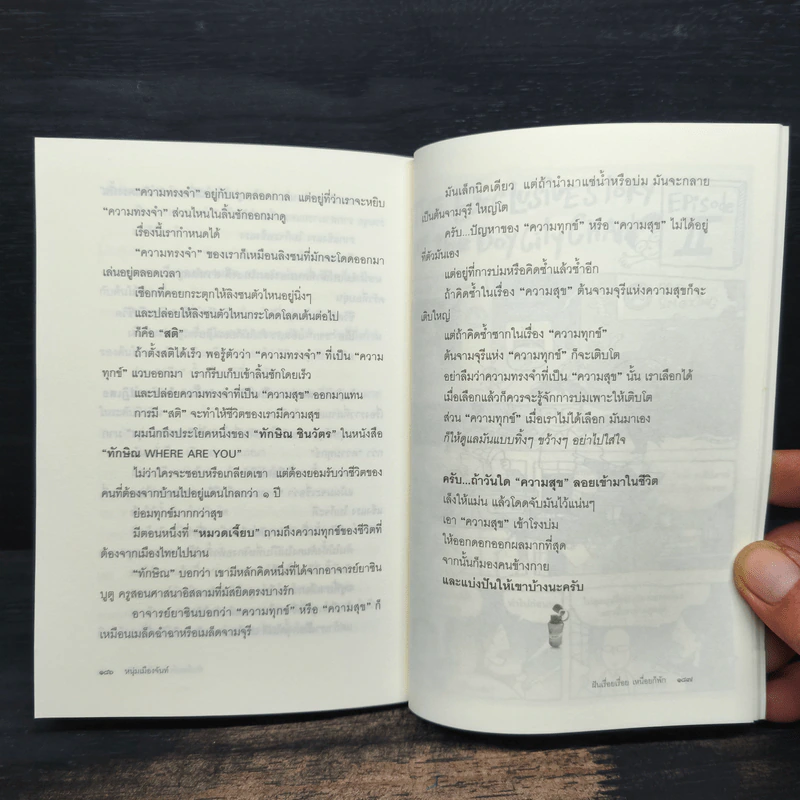 “ความทรงจำ” อยู่กับเราตลอดกาล แต่อยู่ที่ว่าเราจะหยิบ
“ความทรงจำ” ส่วนไหนในลิ้นชักออกมาดู
เรื่องนี้เรากำหนดได้
“ความทรงจำ” ของเราก็เหมือนลิงซนที่มักจะโดดออกมา
เล่นอยู่ตลอดเวลา
เชือกที่คอยกระตุกให้ลิงซนตัวไหนอยู่นิ่งๆ
และปล่อยให้ลิงซนตัวไหนกระโดดโลดเต้นต่อไป
ก็คือ “สติ”
ถ้าตั้งสติได้เร็ว พอรู้ตัวว่า “ความทรงจำ” ที่เป็น “ความ
ทุกข์” แวบออกมา เราก็รีบเก็บเข้าลิ้นชักโดยเร็ว
และปล่อยความทรงจำที่เป็น “ความสุข” ออกมาแทน
การมี “สติ” จะทำให้ชีวิตของเรามีความสุข
ผมนึกถึงประโยคหนึ่งของ “ทักษิณ ชินวัตร” ในหนังสือ
“ทักษิณ WHERE ARE YOU”
ไม่ว่าใครจะชอบหรือเกลียดเขา แต่ต้องยอมรับว่าชีวิตของ
คนที่ต้องจากบ้านไปอยู่แดนไกลกว่า ๑ ปี
ย่อมทุกข์มากกว่าสุข
มีตอนหนึ่งที่ “หมวดเจี๊ยบ” ถามถึงความทุกข์ของชีวิตที่
ต้องจากเมืองไทยไปนาน
“ทักษิณ” บอกว่า เขามีหลักคิดหนึ่งที่ได้จากอาจารย์ยาซิน
บูตู ครูสอนศาสนาอิสลามที่มัสยิดตรงบางรัก
อาจารย์ยาซินบอกว่า “ความทุกข์” หรือ “ความสุข” ก็
เหมือนเมล็ดฉำฉาหรือเมล็ดจามจุรี
๑๘๖ หนุ่มเมืองจันท์
มันเล็กนิดเดียว แต่ถ้านำมาแช่น้ำหรือบ่ม มันจะกลาย
เป็นต้นจามจุรี ใหญ่โต
ครับ...ปัญหาของ “ความทุกข์” หรือ “ความสุข” ไม่ได้อยู่
ที่ตัวมันเอง
แต่อยู่ที่การบ่มหรือคิดซ้ำแล้วซ้ำอีก
ถ้าคิดซ้ำในเรื่อง “ความสุข” ต้นจามจุรีแห่งความสุขก็จะ
เติบใหญ่
แต่ถ้าคิดซ้ำซากในเรื่อง “ความทุกข์”
ต้นจามจุรีแห่ง “ความทุกข์” ก็จะเติบโต
อย่าลืมว่าความทรงจำที่เป็น “ความสุข” นั้น เราเลือกได้
เมื่อเลือกแล้วก็ควรจะรู้จักการบ่มเพาะให้เติบโต
ส่วน “ความทุกข์” เมื่อเราไม่ได้เลือก มันมาเอง
ก็ให้ดูแลมันแบบทิ้งๆ ขว้างๆ อย่าไปใส่ใจ
ครับ...ถ้าวันใด “ความสุข” ลอยเข้ามาในชีวิต
เล็งให้แม่น แล้วโดดจับมันไว้แน่นๆ
เอา “ความสุข” เข้าโรงบ่ม
ให้ออกดอกออกผลมากที่สุด
จากนั้นก็มองคนข้างกาย
และแบ่งปันให้เขาบ้างนะครับ
ฝันเรื่อยเรื่อย เหนื่อยก็พัก ๑๘๗